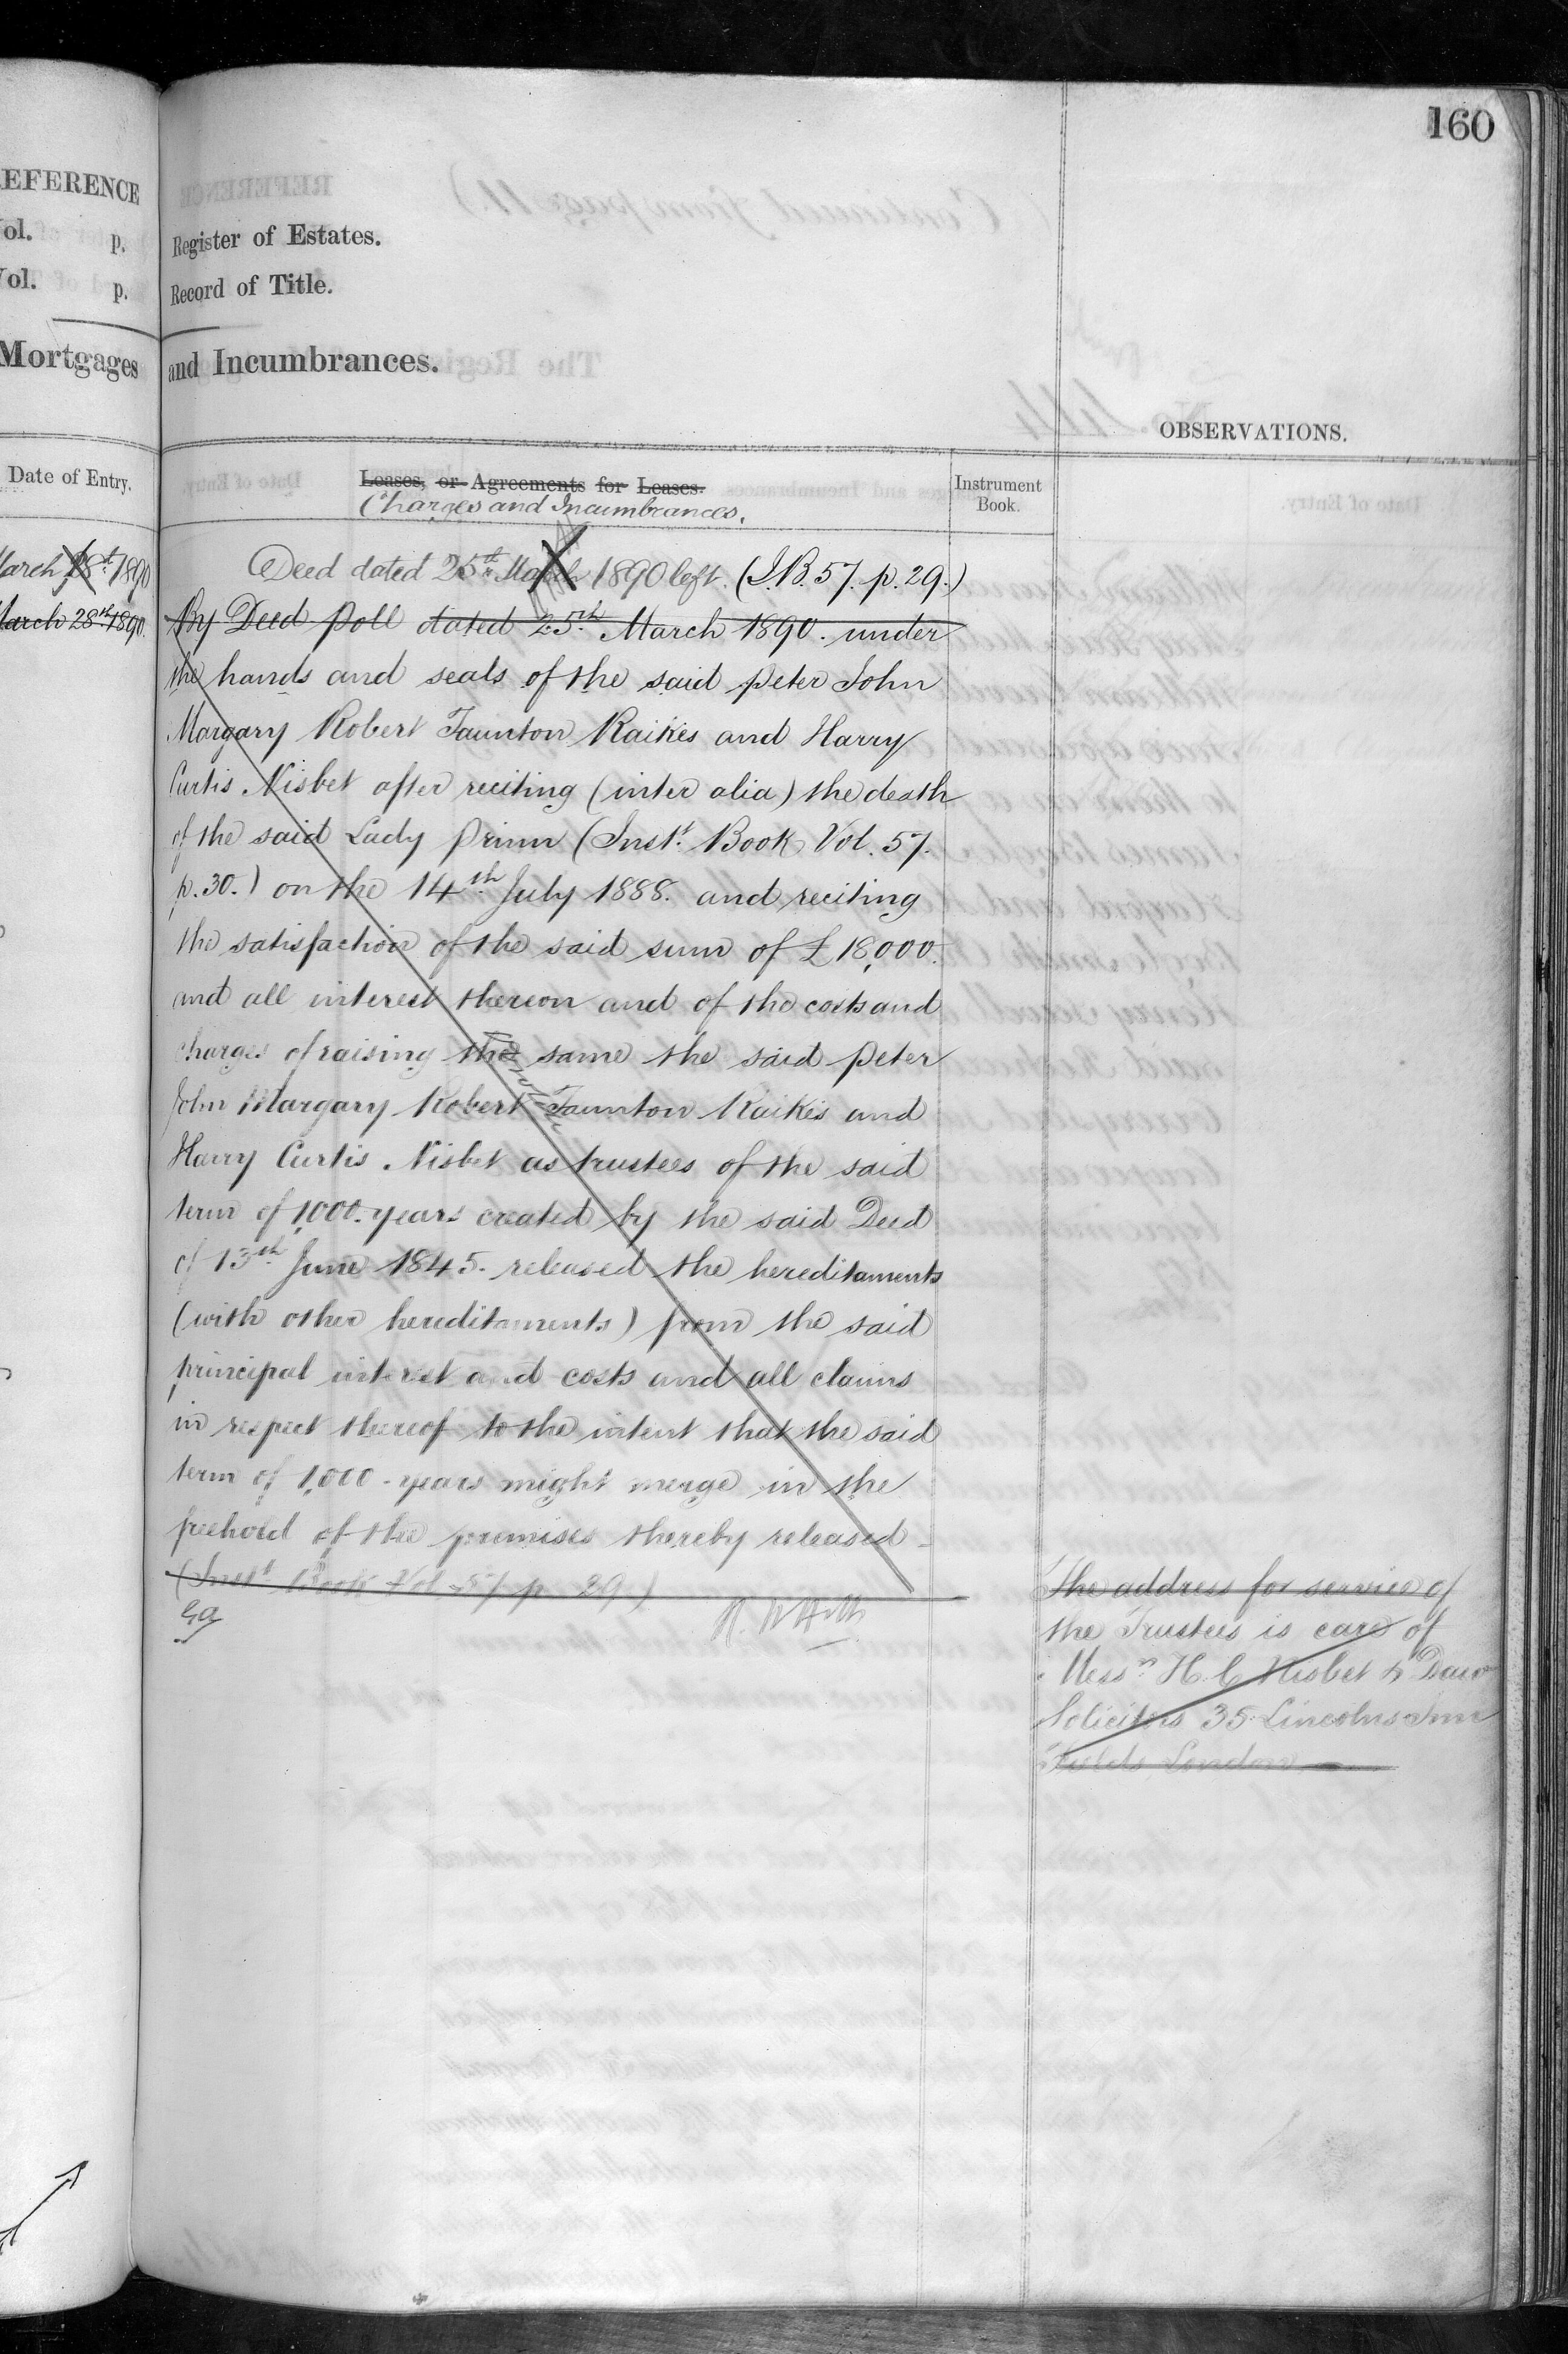 160
EFERENCE
ol. p.
Vol. p.
Register of Estates.
Record of Title.
Mortgages and Incumbrances.
OBSERVATIONS.
Date of Entry.
Leases, or Agreements for Leases.
Charges and Incumbrances.
Instrument
Book.
March 28th 1890
Deed dated 25th March 1890 left. (I.B. 57. p. 29.)
March 28th 1890.
By Deed Poll dated 25th March 1890. under
the hands and seals of the said Peter John
Margary Robert Taunton Raikes and Harry
Curtis Nisbet after reciting (inter alia) the death
of the said Lady Prinn (Inst. Book Vol. 57.
p. 30.) on the 14th July 1888. and reciting
the satisfaction of the said sum of £18,000.
and all interest thereon and of the costs and
charges of raising the same the said Peter
John Margary Robert Taunton Raikes and
Harry Curtis Nisbet as trustees of the said
term of 1,000. years created by the said Deed
of 13th June 1845. released the hereditaments
(with other hereditaments) from the said
principal interest and costs and all claims
in respect thereof to the intent that the said
term of 1,000 - years might merge in the
freehold of the premises thereby released -
(Inst. Book Vol 57 p 29)
The address for service of
the Trustees is care of
Messrs H. C. Nisbet & Daw
Solicitors 35 Lincolns Inn
Fields London